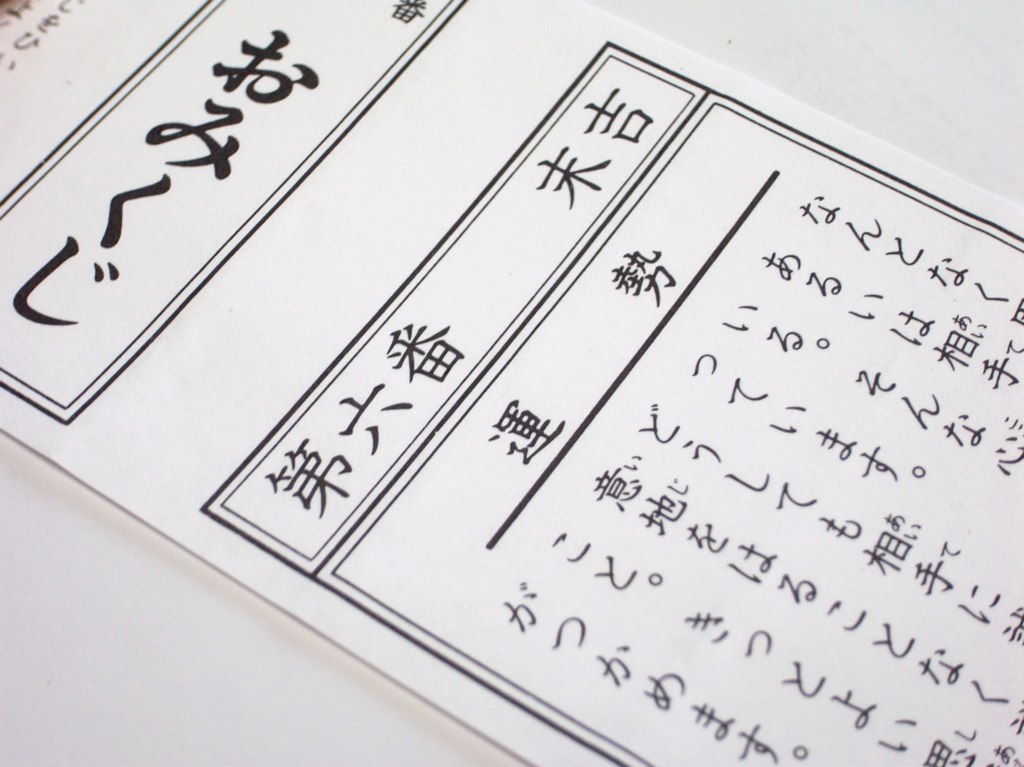 おみくじ
第六番 末吉
運勢
なんとなく
あるいは相手
いる。そんな心
っています。
どうしても相手に
意地をはることなく
こと。きっとよい
がつかめます。